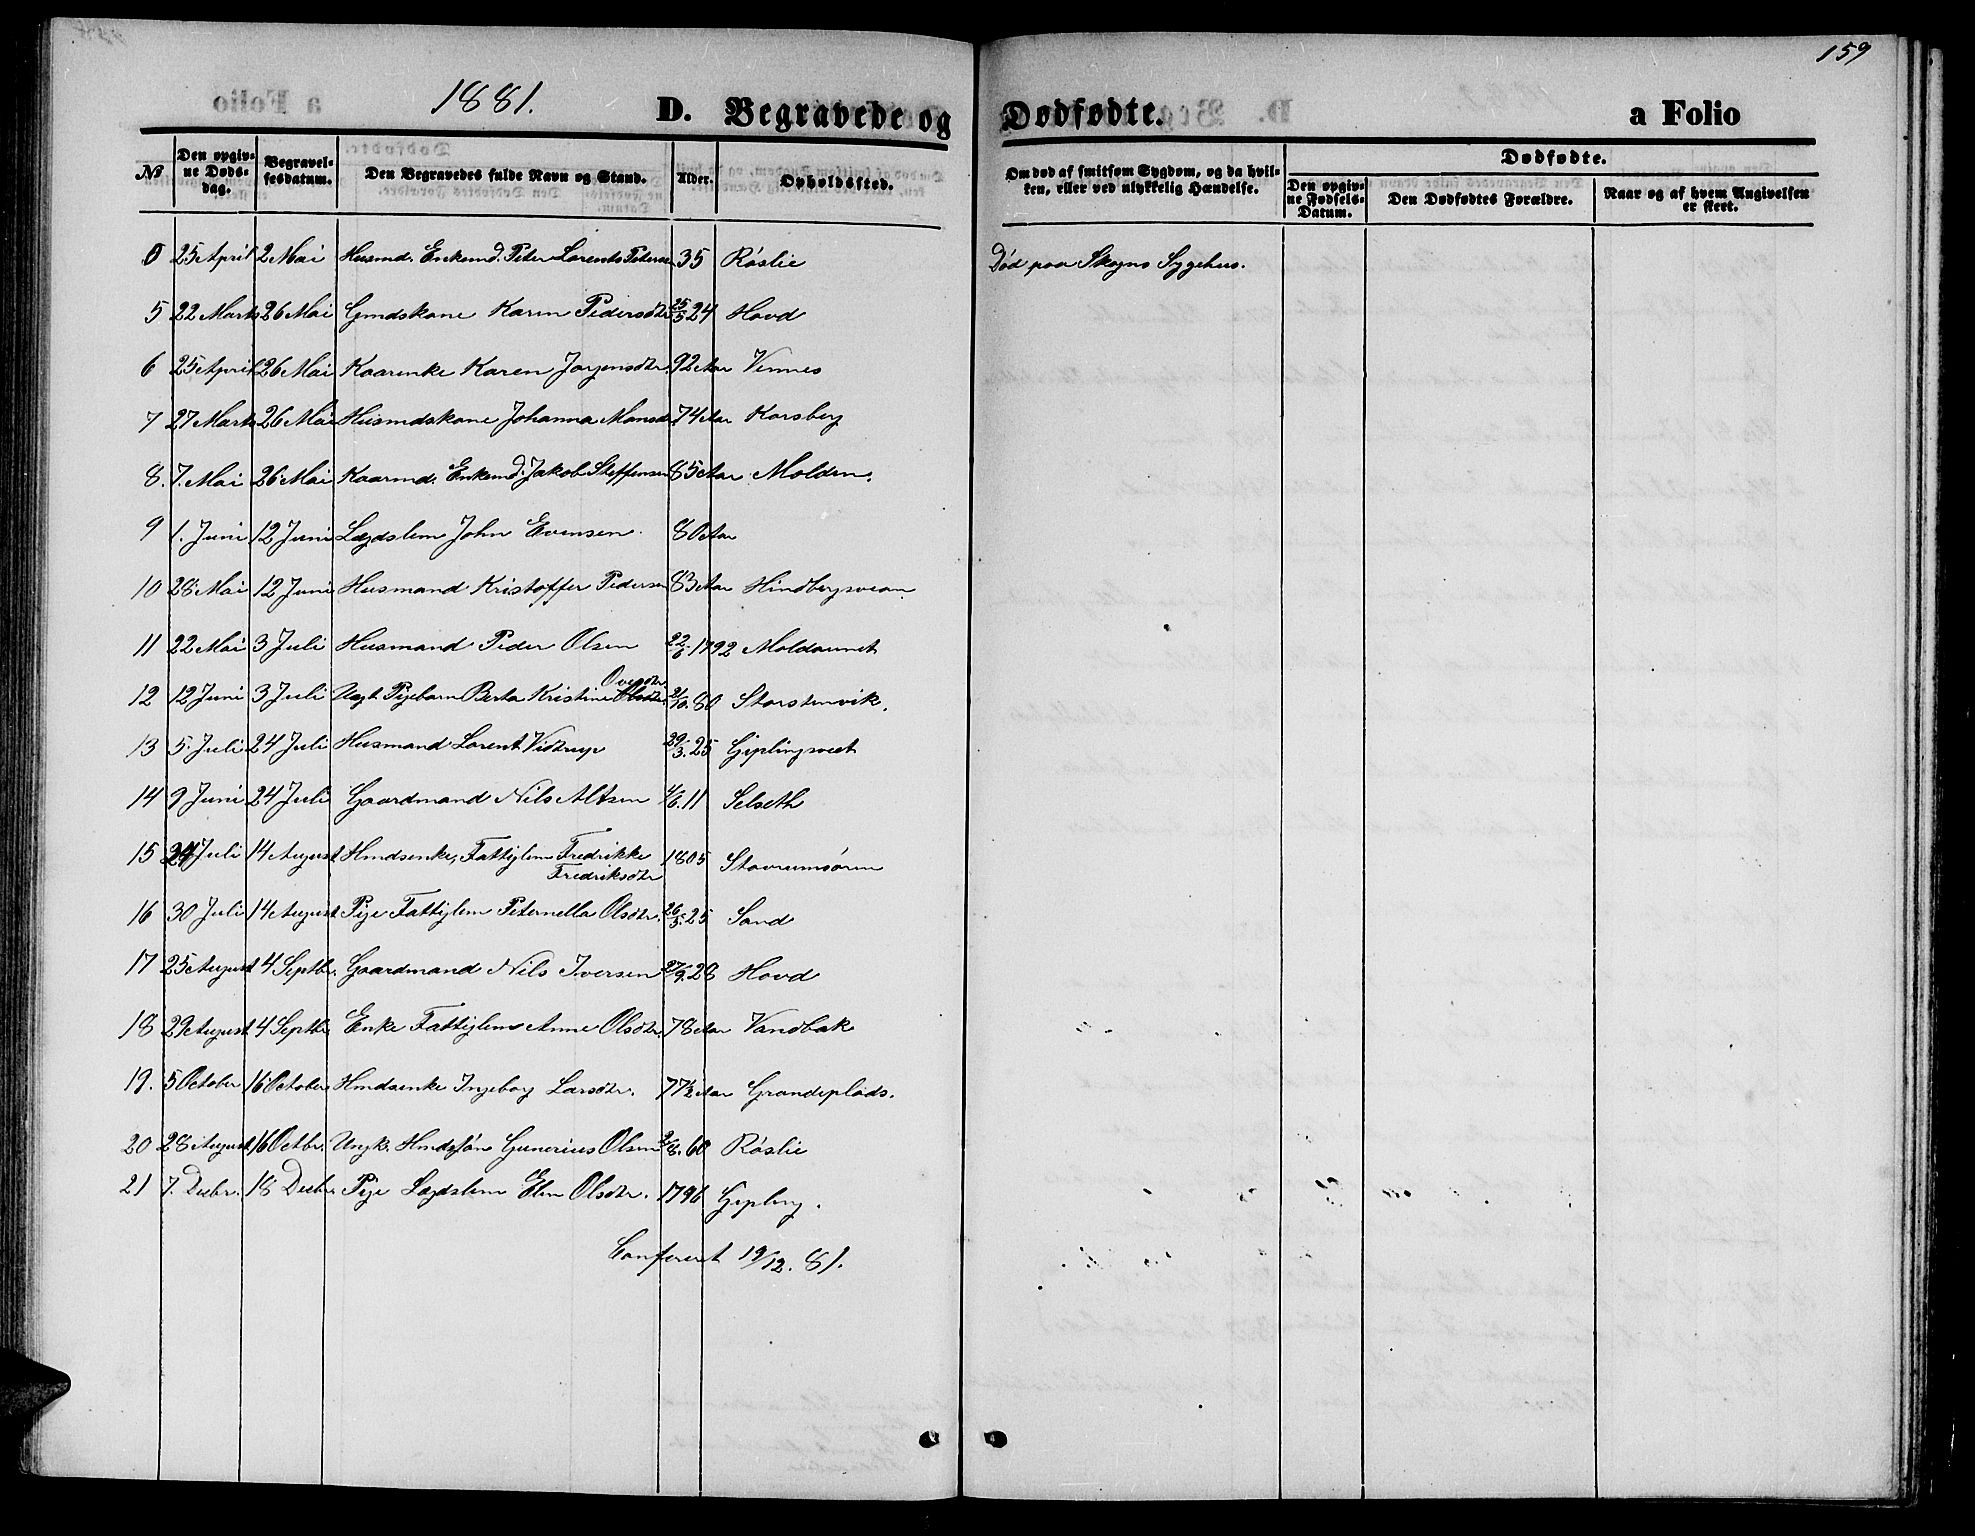 159
1881. D. Begravede og Dødfødte. a Folio
№ Den opgivne Døds-dag. Begravelsesdatum. Den Begravedes fulde Navn og Stand. Alder. Opholdssted. Om død af smitsom Sygdom, og da hvilken, eller ved ulykkelig Hændelse. Dødfødte.
Den opgivne Fødsels-Datum. Den Dødfødtes Forældre. Naar og af hvem Angivelsen er skeet.
0 25 April 2 Mai Husmd. Enkemd. Peter Lorents Peterse 35 Røslie Død paa Skogns Sygehus.
5 22 Marts 26 Mai Gmdskone Karen Pedersdtr 25/5 24 Hovd
6 25 April 26 Mai Kaarenke Karen Jørgensdtr 92 Aar Vennes
7 27 Marts 26 Mai Husmdskone Johanna Monsdr. 74 Aar Korsberg
8. 7. Mai 26 Mai Kaarmd. Enkemd. Jakob Steffensen 85 Aar Molden.
9 1. Juni 12 Juni Lægdslem John Evensen. 80 Aar
10 28 Mai 12 Juni Husmand Kristoffer Pedersen 83 Aar Hindbergsvean
11 22 Mai 3 Juli Husmand Peder Olsen 22/6 1792 Moldaunet
12 12 Juni 3 Juli Uegt. Pigebarn Berta Kristine Ovesdtr 21/10. 80 Storstenvik.
13 5. Juli 24 Juli Husmand Lorent Vistrup 29/3. 25 Giplingsvet
14 9 Juni 24 Juli Gaardmand Nils Altsen 4/6. 11 Selseth
15 24 Juli 14 August Hmdsenke, Fattiglem Fredrikke 1805 Stavrumsøren
Fredriksdtr
16 30 Juli 14 August Pige Fattiglem Peternella Olsdtr. 26/5. 25 Sand
17 25 August 4 Septbr. Gaardmand Nils Iversen 27/9. 28 Hovd
18 29 August 4 Septbr Enke Fattiglem Anne Olsdtr. 78 Aar Vandbak
19. 5 October 16 October Hmdsenke Ingeborg Larsdtr. 77½ Aar Grandeplads.
20 28 August 16 Octbr. Ungk. Hmdssøn Gunerius Olsen 2/8. 60 Røslie
21 7. Decbr. 18 Decbr. Pige Lægdslem Elen Olsdtr. 1796 Gipling.
Confereret 19/12. 81.